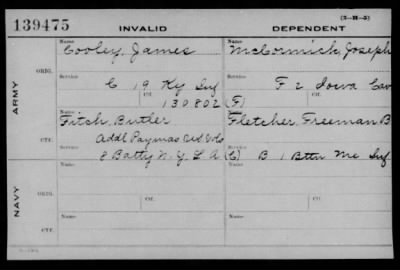 139475
INVALID
DEPENDENT
(3-H-5)
ARMY
ORIG.
Name
Cooley, James
Name
McCormick, Joseph
Service
C 19 Ky Inf
Service
F 2 Iowa Cav
Ctf.
130802 (F)
Ctf.
CTF.
Name
Fitch, Butler
Name
Fletcher, Freeman B
Service
Addl Paymas U.S. Vols
8 Batty N.Y. L A (C)
Service
B 1 Bttn Me Inf
NAVY
ORIG.
Name
Name
Ctf.
CTF.
Name
Name